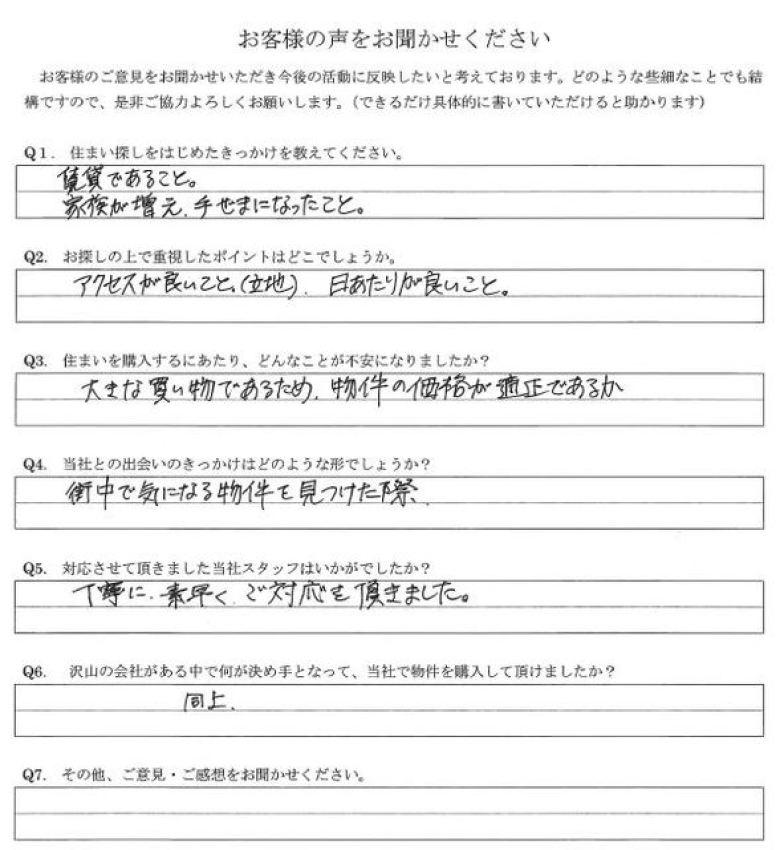 お客様の声をお聞かせください
お客様のご意見をお聞かせいただき今後の活動に反映したいと考えております。どのような些細なことでも結
構ですので、是非ご協力よろしくお願いします。（できるだけ具体的に書いていただけると助かります）
Q1. 住まい探しをはじめたきっかけを教えてください。
賃貸であること。
家族が増え、手ぜまになったこと。
Q2. お探しの上で重視したポイントはどこでしょうか。
アクセスが良いこと。(立地)、日あたりが良いこと。
Q3. 住まいを購入するにあたり、どんなことが不安になりましたか？
大きな買い物であるため、物件の価格が適正であるか
Q4. 当社との出会いのきっかけはどのような形でしょうか？
街中で気になる物件を見つけた際、
Q5. 対応させて頂きました当社スタッフはいかがでしたか？
丁寧に、素早く、ご対応を頂きました。
Q6. 沢山の会社がある中で何が決め手となって、当社で物件を購入して頂けましたか？
同上、
Q7. その他、ご意見・ご感想をお聞かせください。